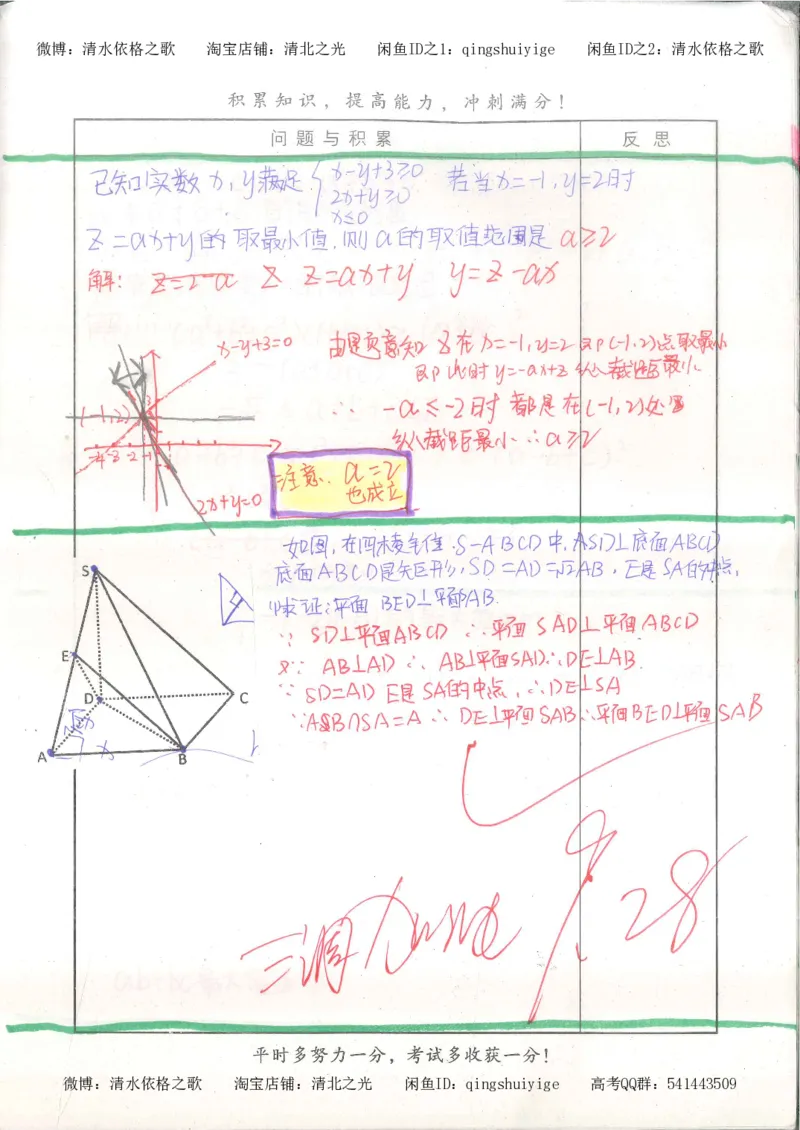 微博：清水依格之歌 淘宝店铺：清北之光 闲鱼ID之1：qingshuiyige 闲鱼ID之2：清水依格之歌
积累知识，提高能力，冲刺满分！
问题与积累 反思
已知实数x,y满足{x-y+3≥0 若当x=-1,y=2时
2x+y≥0
x≤0
Z=ax+y的取最小值,则a的取值范围是 a≥2
解: Z=2-a Z Z=ax+y y=Z-ax
x-y+3=0
由题意知 Z在x=-1,y=2即(-1,2)点取最小
即此时y=-ax+z纵截距最小
(-1,2) ∵ -a≤-2时都是在(-1,2)处
纵截距最小∴a≥2
3
-4 -3 -2 -1
2x+y=0
注意、a=2
也成立
如图,在四棱锥S-ABCD中,SD⊥底面ABCD
底面ABCD是矩形,SD=AD=√2AB,E是SA的中点,
求证:平面BED⊥平面SAB.
∵ SD⊥平面ABCD ∴平面SAD⊥平面ABCD
又∵ AB⊥AD ∴ AB⊥平面SAD∴DE⊥AB.
∵ SD=AD E是SA的中点,∴DE⊥SA
∵AB∩SA=A ∴ DE⊥平面SAB∴平面BED⊥平面SAB
S
E
D
C
A
B
x
28
平时多努力一分，考试多收获一分！
微博：清水依格之歌 淘宝店铺：清北之光 闲鱼ID：qingshuiyige 高考QQ群：541443509